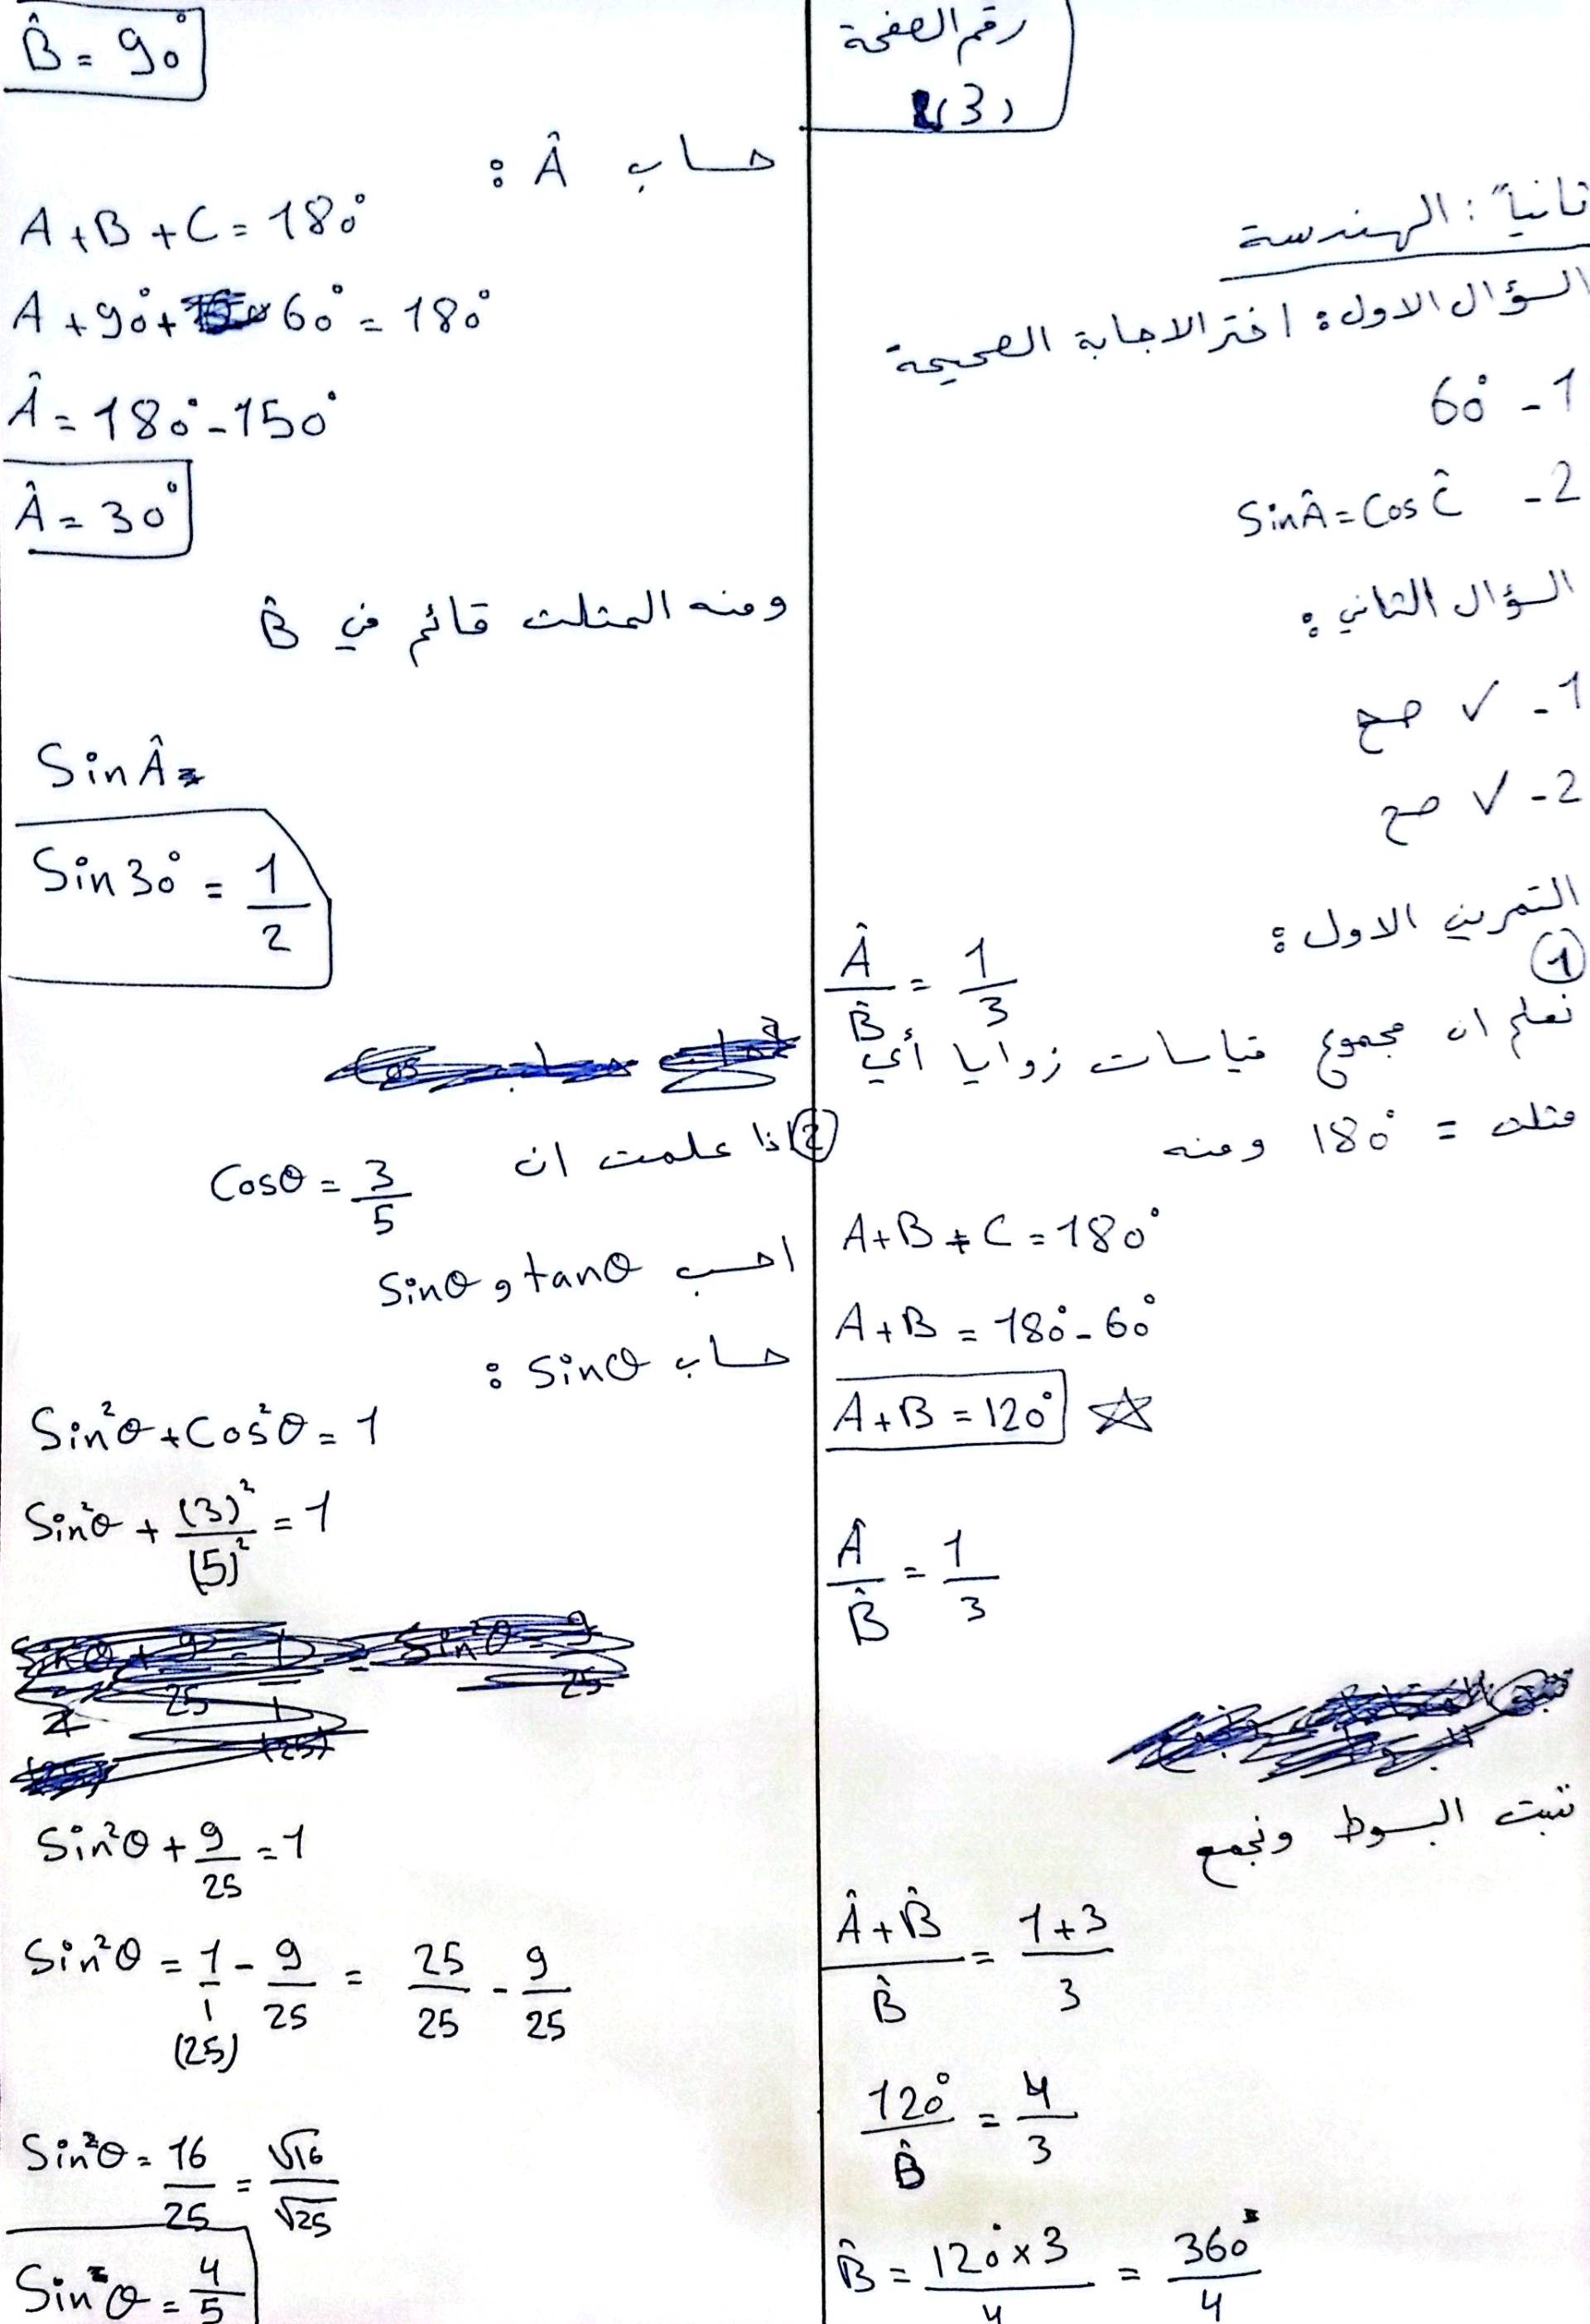 رقم الصفحة
(3)
ثانياً: الهندسة
السؤال الاول: اختر الاجابة الصحيحة
1 - 60°
2 - Sin Â = Cos Ĉ
السؤال الثاني:
1 - ✓ صح
2 - ✓ صح
التمرين الاول:
①
Â/B̂ = 1/3
نعلم ان مجموع قياسات زوايا أي
مثلث = 180° ومنه
A + B + C = 180°
A + B = 180° - 60°
A + B = 120° ☆
Â/B̂ = 1/3
نثبت البسوط ونجمع
(Â + B̂)/B̂ = (1+3)/3
120°/B̂ = 4/3
B̂ = (120° × 3)/4 = 360°/4
B̂ = 90°
حساب Â :
A + B + C = 180°
A + 90° + 60° = 180°
Â = 180° - 150°
Â = 30°
ومنه المثلث قائم في B̂
Sin Â =
Sin 30° = 1/2
② اذا علمت ان Cosθ = 3/5
احسب tanθ و Sinθ
حساب Sinθ :
Sin²θ + Cos²θ = 1
Sin²θ + (3)²/(5)² = 1
Sin²θ + 9/25 = 1
Sin²θ = 1/1 - 9/25 = 25/25 - 9/25
(25)
Sin²θ = 16/25 = √16/√25
Sin θ = 4/5